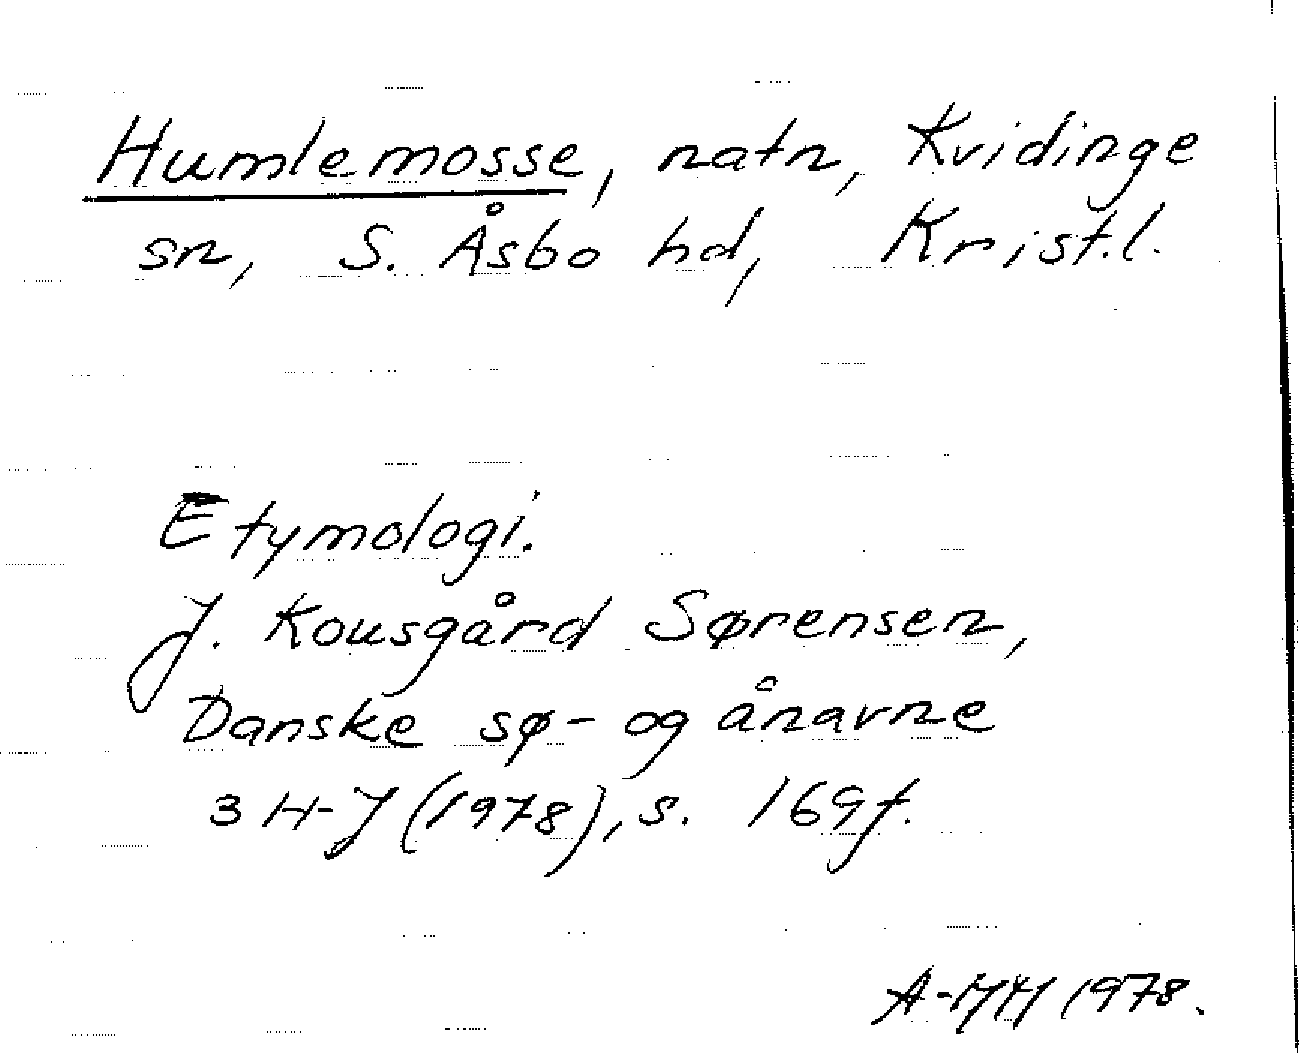 Humlemosse, natn, Kvidinge
sn, S. Åsbo hd, Krist.l.
Etymologi.
J. Kousgård Sørensen,
Danske sø- og ånavne
3 H-J (1978), s. 169f.
1978.